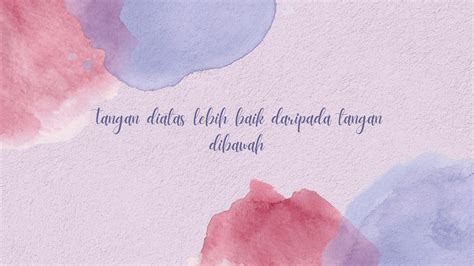 tangan diatas lebih baik daripada tangan
dibawah